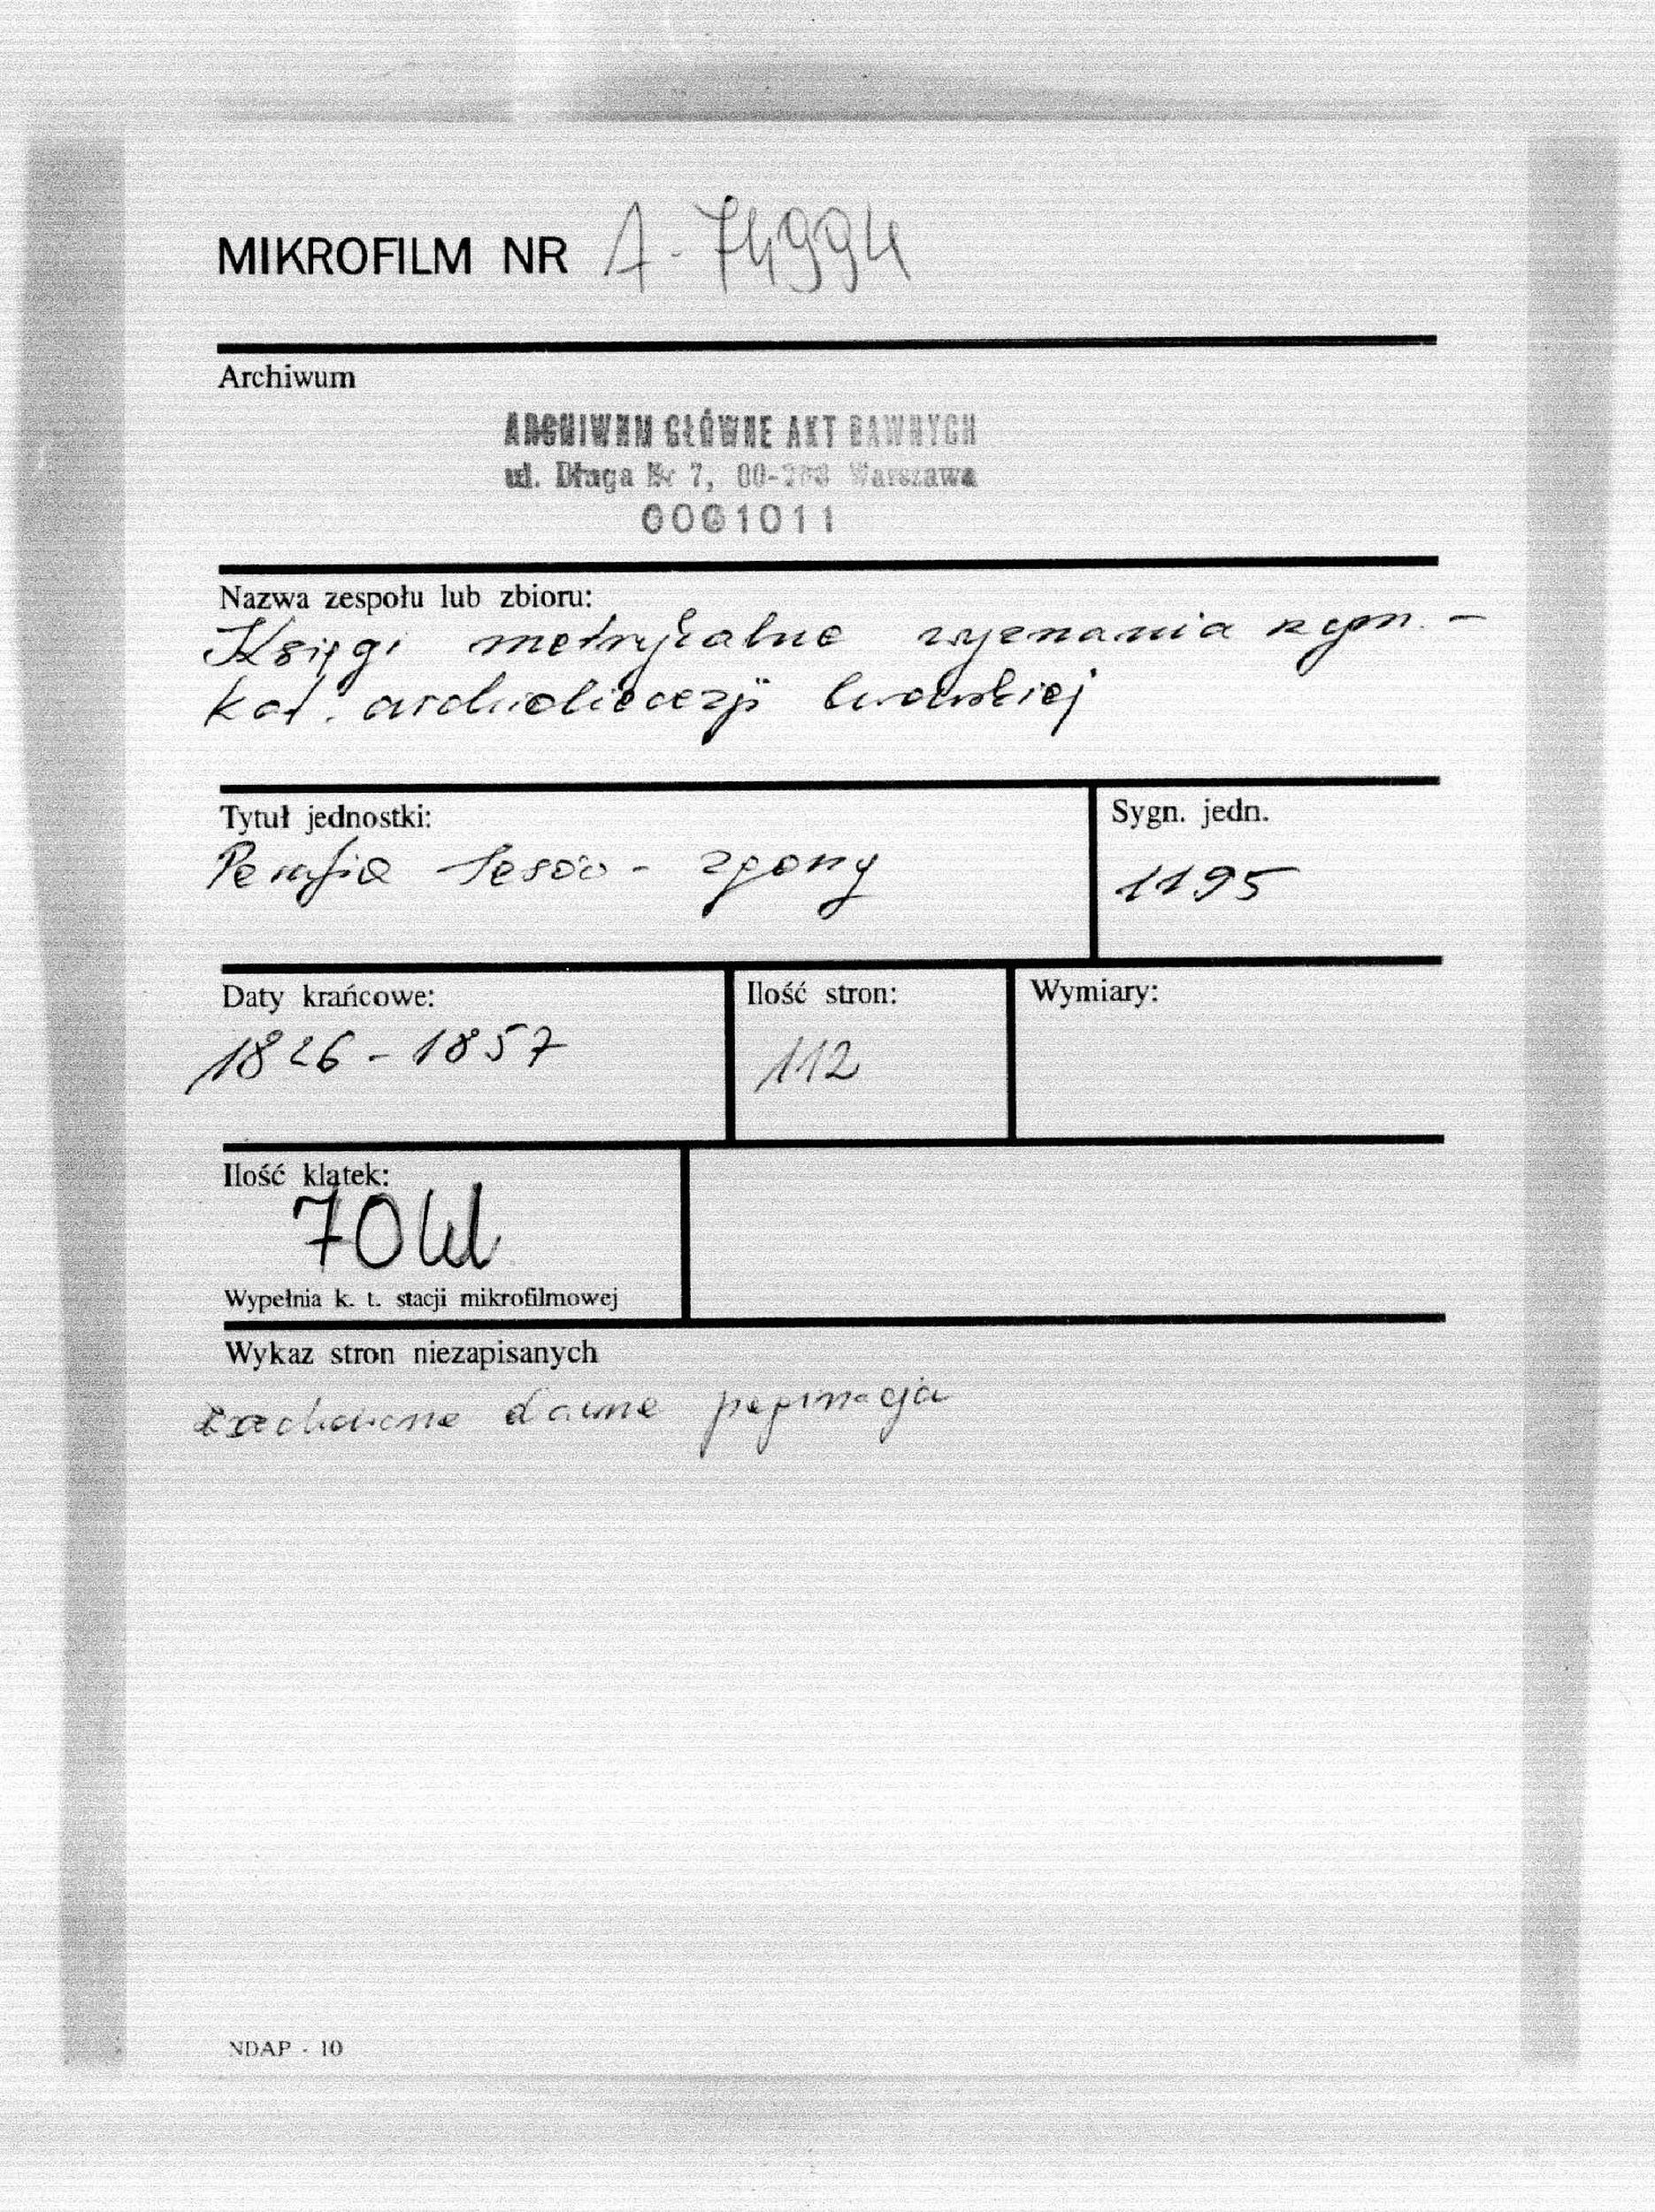 MIKROFILM NR A-74994
Archiwum
ARCHIWUM GŁÓWNE AKT DAWNYCH
ul. Długa Nr 7, 00-263 Warszawa
0001011
Nazwa zespołu lub zbioru:
Księgi metrykalne wyznania rzym.-
kat. archidiecezji lwowskiej
Tytuł jednostki:
Sygn. jedn.
Parafia Sasów - zgony
1195
Daty krańcowe:
Ilość stron:
Wymiary:
1826-1857
112
Ilość klatek:
70 kl
Wypełnia k. t. stacji mikrofilmowej
Wykaz stron niezapisanych
zachowano dawne paginacja
NDAP - 10